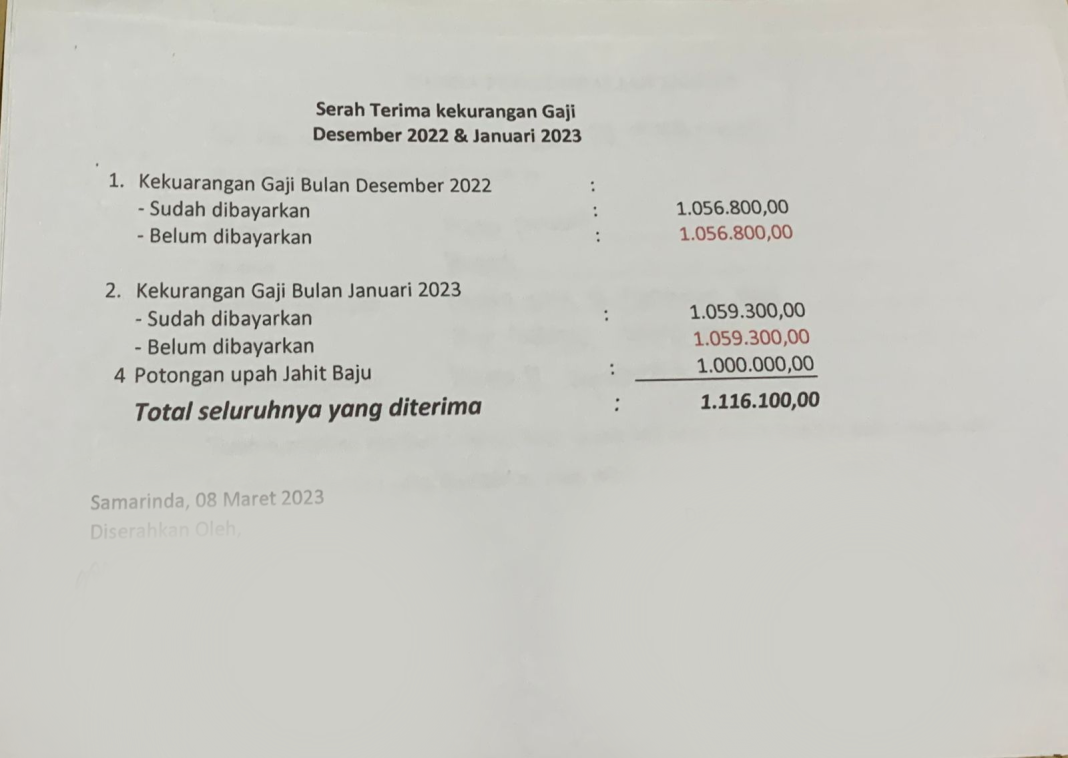 Serah Terima kekurangan Gaji
Desember 2022 & Januari 2023
1. Kekuarangan Gaji Bulan Desember 2022 :
- Sudah dibayarkan : 1.056.800,00
- Belum dibayarkan : 1.056.800,00
2. Kekurangan Gaji Bulan Januari 2023
- Sudah dibayarkan : 1.059.300,00
- Belum dibayarkan 1.059.300,00
4 Potongan upah Jahit Baju : 1.000.000,00
Total seluruhnya yang diterima : 1.116.100,00
Samarinda, 08 Maret 2023
Diserahkan Oleh,